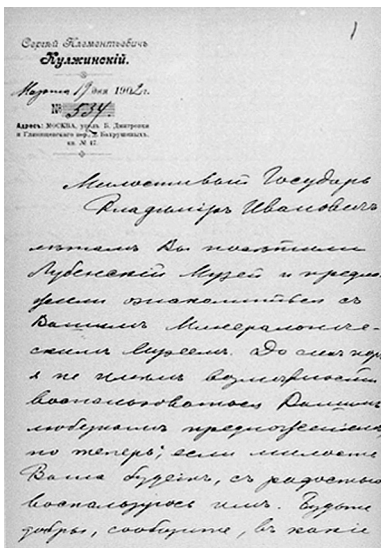 1
Сергѣй Клементьевичъ
Кулжинскій.
Марта 19 дня 1902 г.
№ 534.
Адресъ: МОСКВА, уголъ Б. Дмитровки
и Глинищевскаго пер., д. Бахрушиныхъ.
кв. № 47.
Милостивый Государь
Владиміръ Ивановичъ
лѣтомъ Вы посѣтили
Лубенскій Музей и предло-
жили ознакомиться съ
Вашимъ Минералогиче-
скимъ Музеемъ. До сихъ поръ
я не имѣлъ возможности
воспользоваться Вашимъ
любезнымъ предложеніемъ,
но теперь, если милость
Ваша будетъ, съ радостью
воспользуюсь имъ. Будьте
добры, сообщите, въ какіе